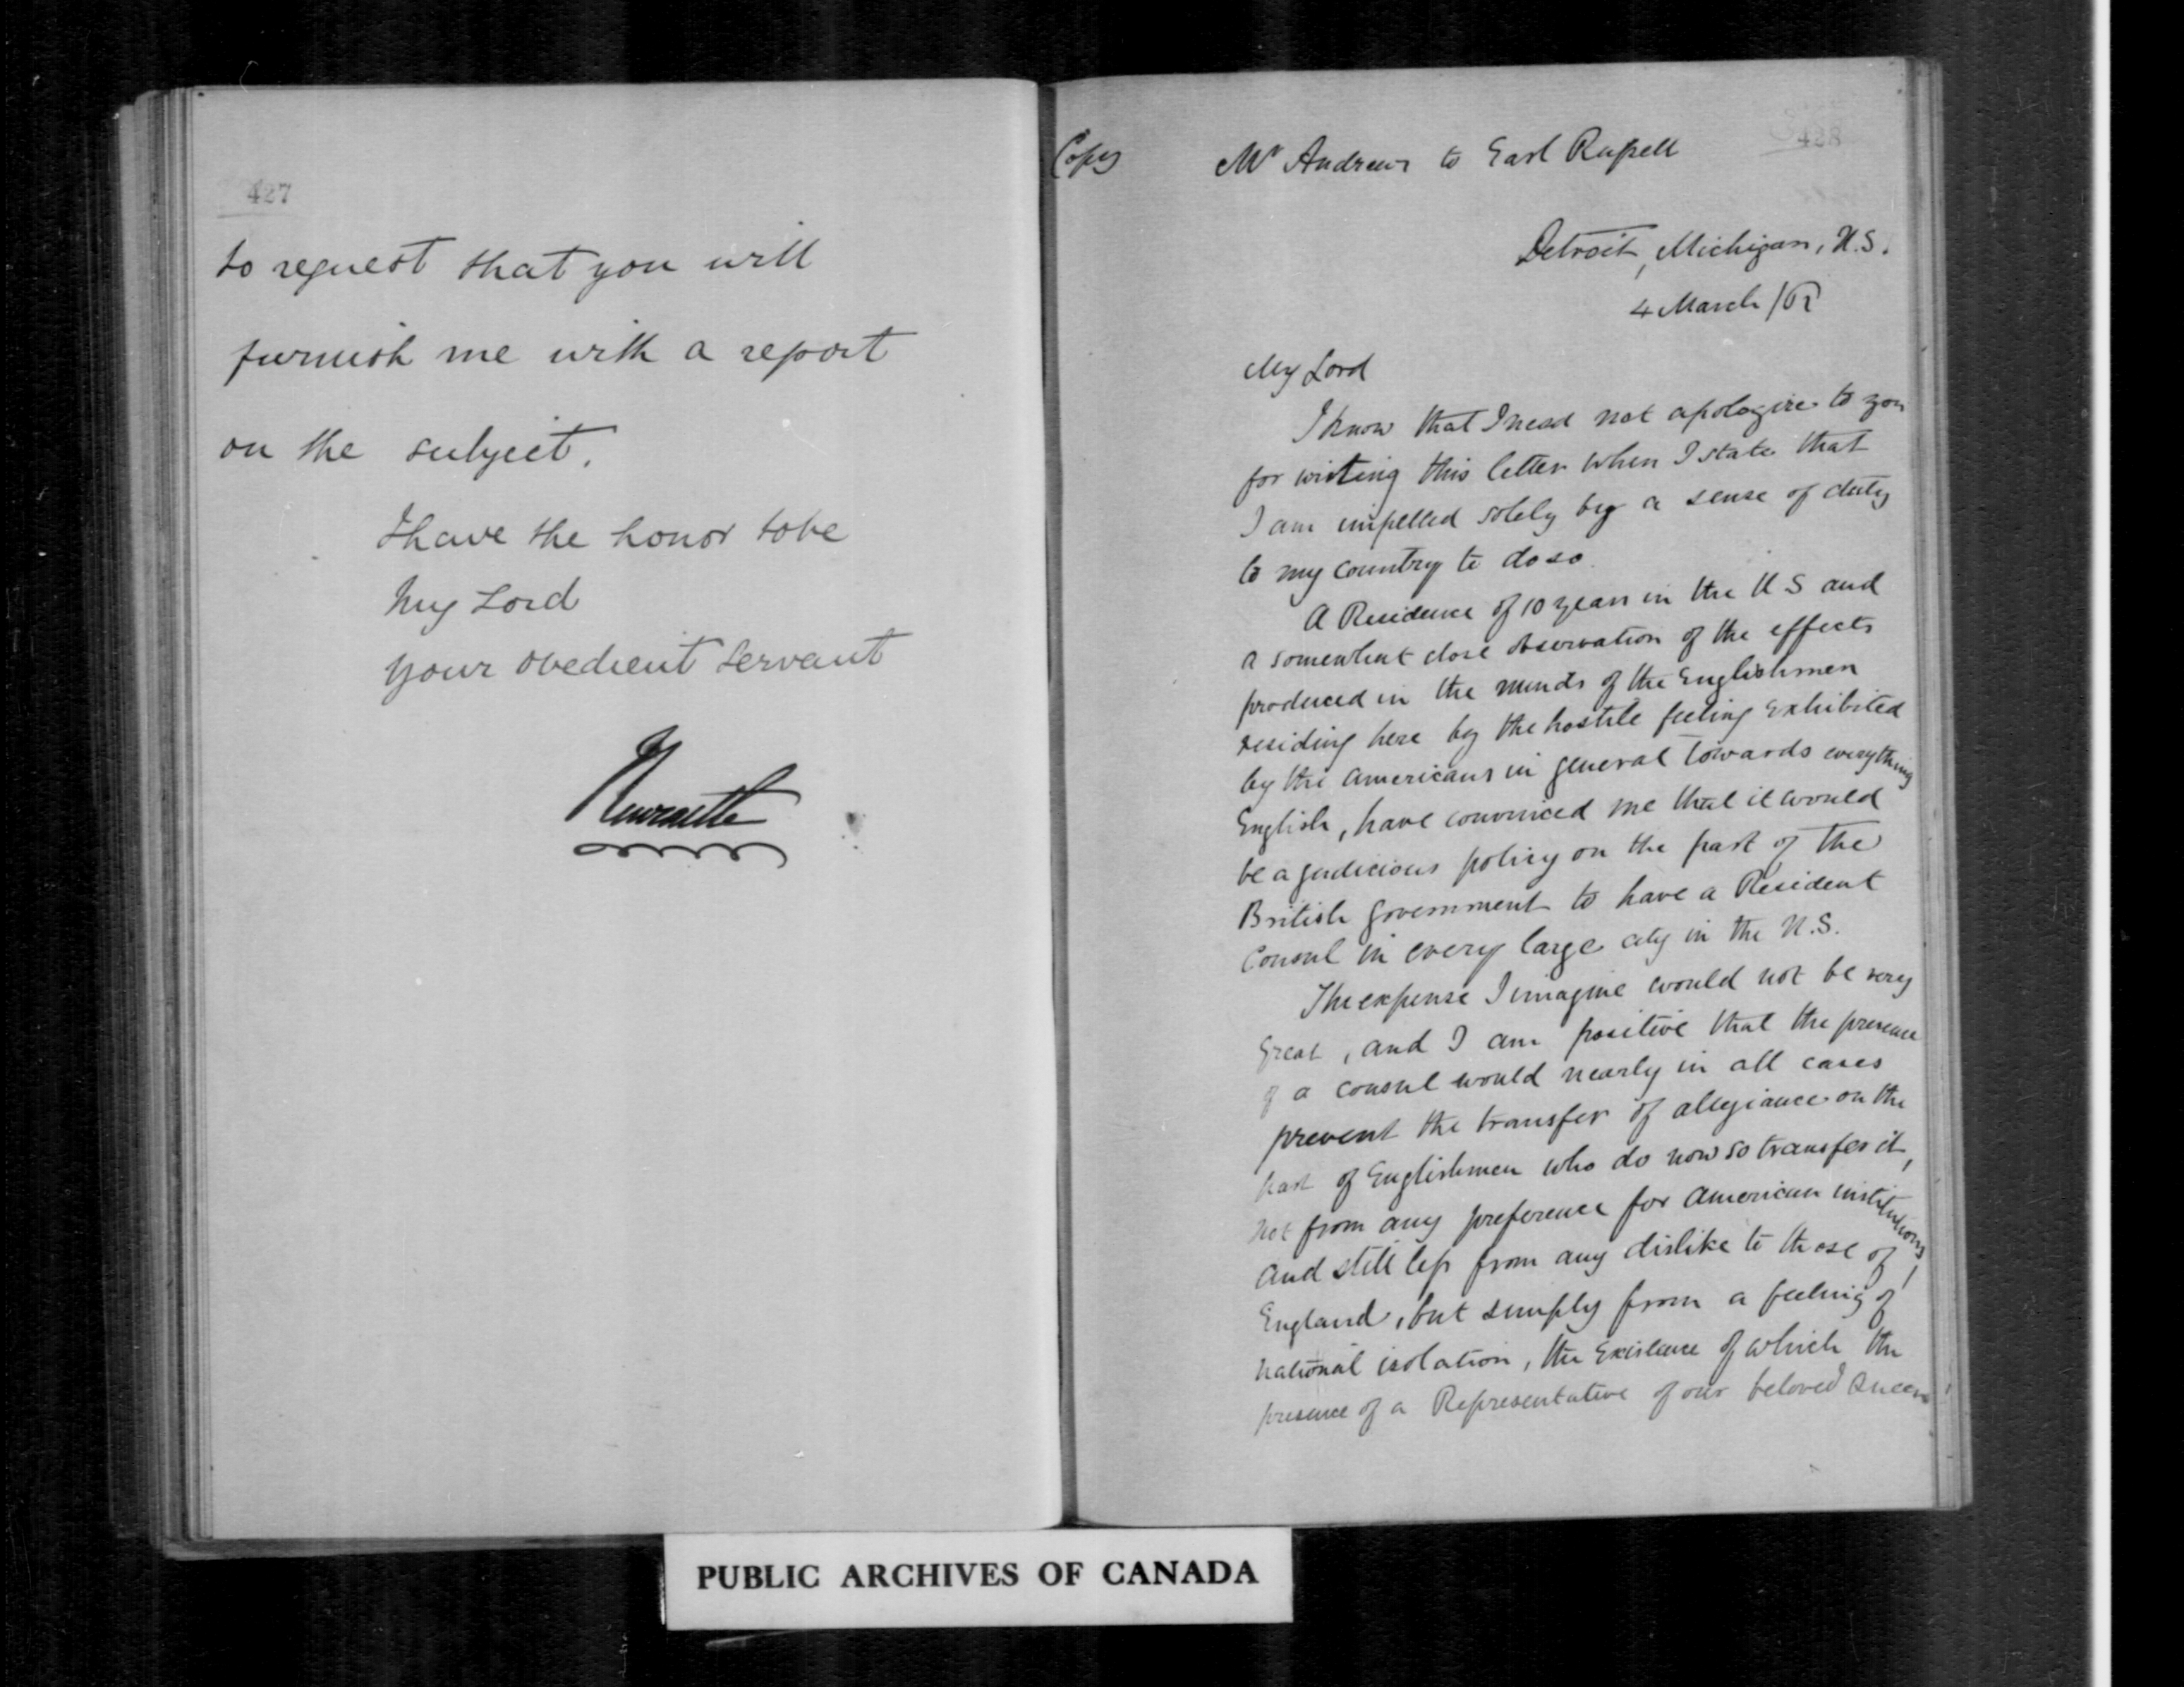 427
to request that you will
furnish me with a report
on the subject.
I have the honor to be
My Lord
your obedient servant
Newcastle
428
Copy
Mr Andrews to Earl Russell
Detroit, Michigan, U.S.
4 March /62
My Lord
I know that I need not apologize to you
for writing this letter when I state that
I am impelled solely by a sense of duty
to my country to do so.
A Residence of 10 years in the U S and
a somewhat close observation of the effects
produced in the minds of the Englishmen
residing here by the hostile feeling exhibited
by the Americans in general towards everything
English, have convinced me that it would
be a judicious policy on the part of the
British Government to have a Resident
Consul in every large city in the U.S.
The expense I imagine would not be very
great, and I am positive that the presence
of a consul would nearly in all cases
prevent the transfer of allegiance on the
part of Englishmen who do now so transfer it,
not from any preference for American institutions,
and still less from any dislike to those of
England, but simply from a feeling of
national isolation, the existence of which the
presence of a Representative of our beloved Queen
PUBLIC ARCHIVES OF CANADA